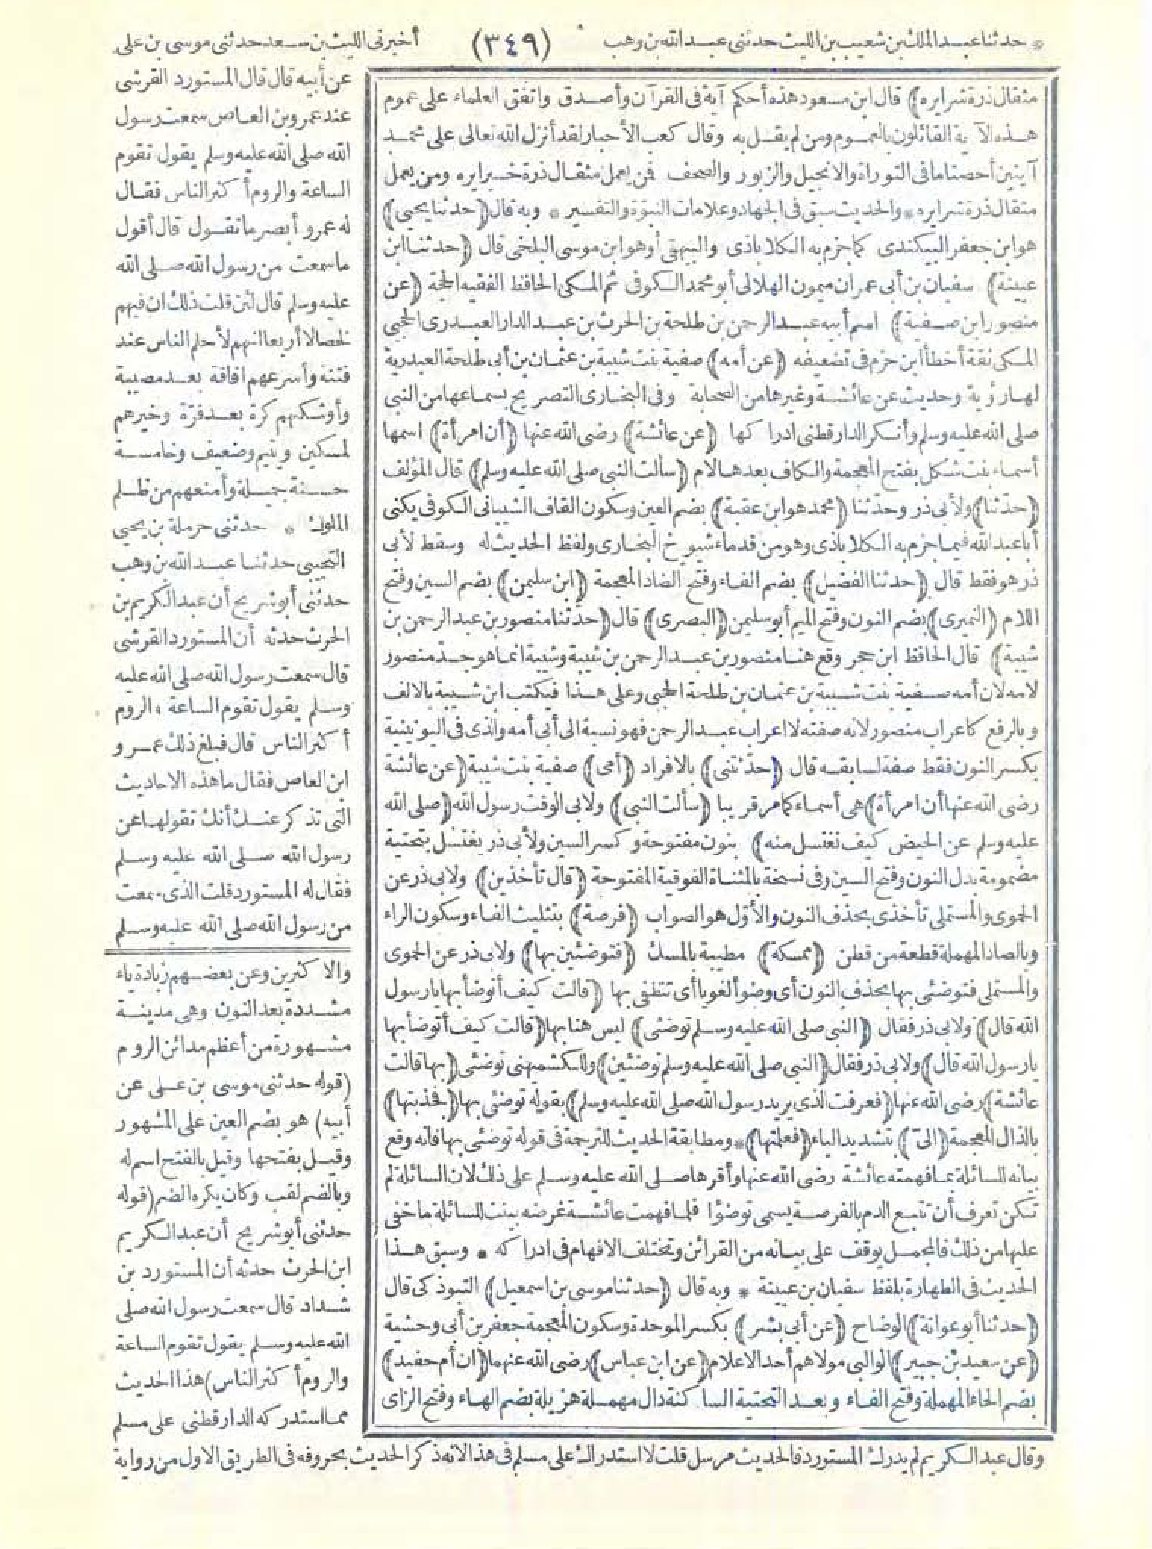 * حدثنا عبد الملك بن شعيب بن الليث حدثني عبد الله بن وهب (٣٤٩) أخبرني الليث بن سعد حدثني موسى بن علي
مثقال ذرة شرا يره) قال ابن مسعود هذه أحكم آية في القرآن وأصدق واتفق العلماء على عموم
هذه الآية القائلون بالعموم ومن لم يقل به وقال كعب الأحبار لقد أنزل الله تعالى على محمد
آيتين أحصتا ما في التوراة والانجيل والزبور والصحف فمن يعمل مثقال ذرة خيرا يره ومن يعمل
مثقال ذرة شرا يره * والحديث سبق في الجهاد وعلامات النبوة والتفسير * وبه قال (حدثنا يحيى)
هو ابن جعفر البيكندي كما جزم به الكلاباذى والبيهقي أو هو ابن موسى البلخي قال (حدثنا ابن
عيينة) سفيان بن أبي عمران ميمون الهلالي أبو محمد الكوفي ثم المكي الحافظ الفقيه الحجة (عن
منصور ابن صفية) اسم أبيه عبد الرحمن بن طلحة بن الحرث بن عبد الدار العبدرى الحجبي
المكي ثقة أخطأ ابن حزم في تضعيفه (عن أمه) صفية بنت شيبة بن عثمان بن أبي طلحة العبدرية
لها رؤية وحديث عن عائشة وغيرها من الصحابة وفي البخارى التصريح بسماعها من النبي
صلى الله عليه وسلم وأنكر الدارقطني ادراكها (عن عائشة) رضي الله عنها (أن امرأة) اسمها
أسماء بنت شكل بفتح المعجمة والكاف بعدها لام (سألت النبي صلى الله عليه وسلم) قال المؤلف
(حدثنا) ولأبي ذر وحدثنا (محمد هو ابن عقبة) بضم العين وسكون القاف الشيباني الكوفي يكنى
أبا عبد الله فيما جزم به الكلاباذى وهو من قدماء شيوخ البخارى ولفظ الحديث له وسقط لأبي
ذر هو فقط قال (حدثنا الفضيل) بضم الفاء وفتح الضاد المعجمة (ابن سليمن) بضم السين وفتح
اللام (النميرى) بضم النون وفتح الميم أبو سليمن (البصرى) قال (حدثنا منصور بن عبد الرحمن بن
شيبة) قال الحافظ ابن حجر وقع هنا منصور بن عبد الرحمن بن شيبة وشيبة انما هو جد منصور
لامه لان أمه صفية بنت شيبة بن عثمان بن طلحة الحجبي وعلى هذا فيكتب ابن شيبة بالالف
وبالرفع كاعراب منصور لانه صفته لا اعراب عبد الرحمن فهو نسبة الى أبي أمه والذى في اليونينية
بكسر النون فقط صفة لسابقه قال (حدثتني) بالافراد (أمى) صفية بنت شيبة (عن عائشة
رضي الله عنها أن امرأة) هي أسماء كما مر قريبا (سألت النبي) ولابي الوقت رسول الله (صلى الله
عليه وسلم عن الحيض كيف نغتسل منه) بنون مفتوحة وكسر السين ولأبي ذر يغتسل بتحتية
مضمومة بدل النون وفتح السين وفي نسخة بالمثناة الفوقية المفتوحة (قال تأخذين) ولابي ذر عن
الحموى والمستملي تأخذى بحذف النون والأول هو الصواب (فرصة) بتثليث الفاء وسكون الراء
وبالصاد المهملة قطعة من قطن (ممسكة) مطيبة بالمسك (فتوضئين بها) ولابي ذر عن الحموى
والمستملي فتوضئي بها بحذف النون أي وضوأ لغويا أي تنظفي بها (قالت كيف أتوضأ بها يا رسول
الله قال) ولابي ذر فقال (النبي صلى الله عليه وسلم توضئي) ليس هنا بها (قالت كيف أتوضأ بها
يا رسول الله قال) ولابي ذر فقال (النبي صلى الله عليه وسلم توضئين) وللكشميهني توضئي (بها قالت
عائشة) رضي الله عنها (فعرفت الذى يريد رسول الله صلى الله عليه وسلم) بقوله توضئي بها (فجذبتها)
بالذال المعجمة (الي) بتشديد الياء (فعلمتها) * ومطابقة الحديث للترجمة في قوله توضئي بها فانه وقع
بيانه للسائلة بما فهمته عائشة رضي الله عنها وأقرها صلى الله عليه وسلم على ذلك لان السائلة لم
تكن تعرف أن تتبع الدم بالفرصة يسمى توضؤا فلما فهمت عائشة غرضه بينت للسائلة ما خفي
عليها من ذلك فالمجمل يوقف على بيانه من القرائن وتختلف الافهام في ادراكه * وسبق هذا
الحديث في الطهارة بلفظ سفيان بن عيينة * وبه قال (حدثنا موسى بن اسمعيل) التبوذكي قال
(حدثنا أبو عوانة) الوضاح (عن أبي بشر) بكسر الموحدة وسكون المعجمة جعفر بن أبي وحشية
(عن سعيد بن جبير) الوالبي مولاهم أحد الاعلام (عن ابن عباس) رضي الله عنهما (ان أم حفيد)
بضم الحاء المهملة وفتح الفاء وبعد التحتية الساكنة دال مهملة هزيلة بضم الهاء وفتح الزاى
عن أبيه قال قال المستورد القرشي
عند عمرو بن العاص سمعت رسول
الله صلى الله عليه وسلم يقول تقوم
الساعة والروم أكثر الناس فقال
له عمرو أبصر ما تقول قال أقول
ما سمعت من رسول الله صلى الله
عليه وسلم قال لئن قلت ذلك ان فيهم
لخصالا أربعا انهم لأحلم الناس عند
فتنة وأسرعهم افاقة بعد مصيبة
وأوشكهم كرة بعد فرة وخيرهم
لمسكين ويتيم وضعيف وخامسة
حسنة جميلة وأمنعهم من ظلم
الملوك * حدثني حرملة بن يحيى
التجيبي حدثنا عبد الله بن وهب
حدثني أبو شريح أن عبد الكريم بن
الحرث حدثه أن المستورد القرشي
قال سمعت رسول الله صلى الله عليه
وسلم يقول تقوم الساعة والروم
أكثر الناس قال فبلغ ذلك عمرو
ابن العاص فقال ما هذه الاحاديث
التي تذكر عنك أنك تقولها عن
رسول الله صلى الله عليه وسلم
فقال له المستورد قلت الذى سمعت
من رسول الله صلى الله عليه وسلم
والاكثرين وعن بعضهم زيادة ياء
مشددة بعد النون وهي مدينة
مشهورة من أعظم مدائن الروم
(قوله حدثني موسى بن علي عن
أبيه) هو بضم العين على المشهور
وقيل بفتحها وقيل بالفتح اسم له
وبالضم لقب وكان يكره الضم (قوله
حدثني أبو شريح أن عبد الكريم
ابن الحرث حدثه أن المستورد بن
شداد قال سمعت رسول الله صلى
الله عليه وسلم يقول تقوم الساعة
والروم أكثر الناس) هذا الحديث
مما استدركه الدارقطني على مسلم
وقال عبد الكريم لم يدرك المستورد فالحديث مرسل قلت لا استدراك على مسلم في هذا لانه ذكر الحديث بحروفه في الطريق الاول من رواية